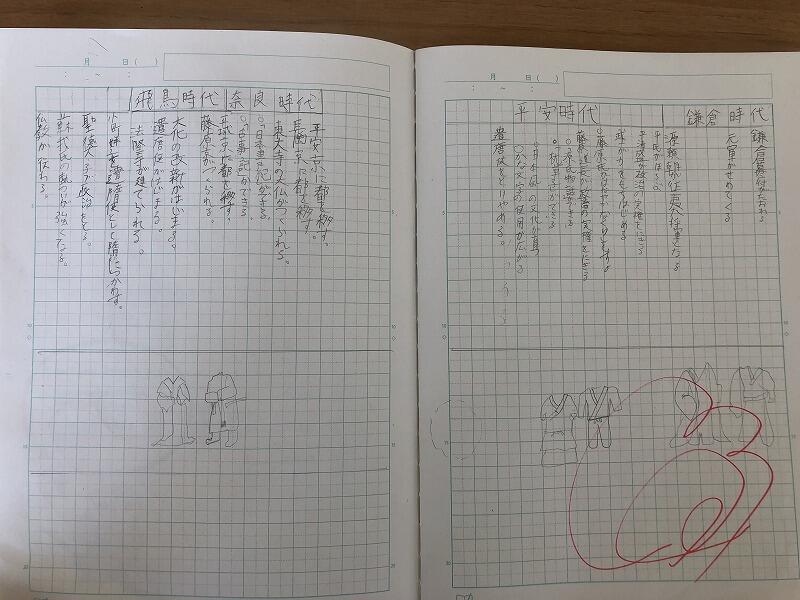 月 日( )
: ~ :
飛鳥時代
奈良時代
仏教が伝わる。
蘇我氏の力が強くなる。
聖徳太子が政治をとる
小野妹子を遣隋使として隋につかわす。
法隆寺が建てられる。
遣唐使がはじまる。
大化の改新がはじまる。
藤原京がつくられる。
平城京に都を移す。
○「古事記」ができる。
○「日本書紀」ができる。
東大寺の大仏がつくられる。
長岡京に都を移す。
平安京に都を移す。
5
10
15
20
月 日( )
: ~ :
平安時代
鎌倉時代
遣唐使をとりやめる。
○かな文字の使用が広がる
○日本風の文化が育つ
○枕草子ができる
○源氏物語ができる
藤原道長が政治の実権をにぎる
武士が力をもちはじめる
平清盛が政治の実権をにぎる
平氏がほろぶ
源頼朝が征夷大将軍となる
元軍がせめてくる
鎌倉幕府がたおれる
5
10
15
20